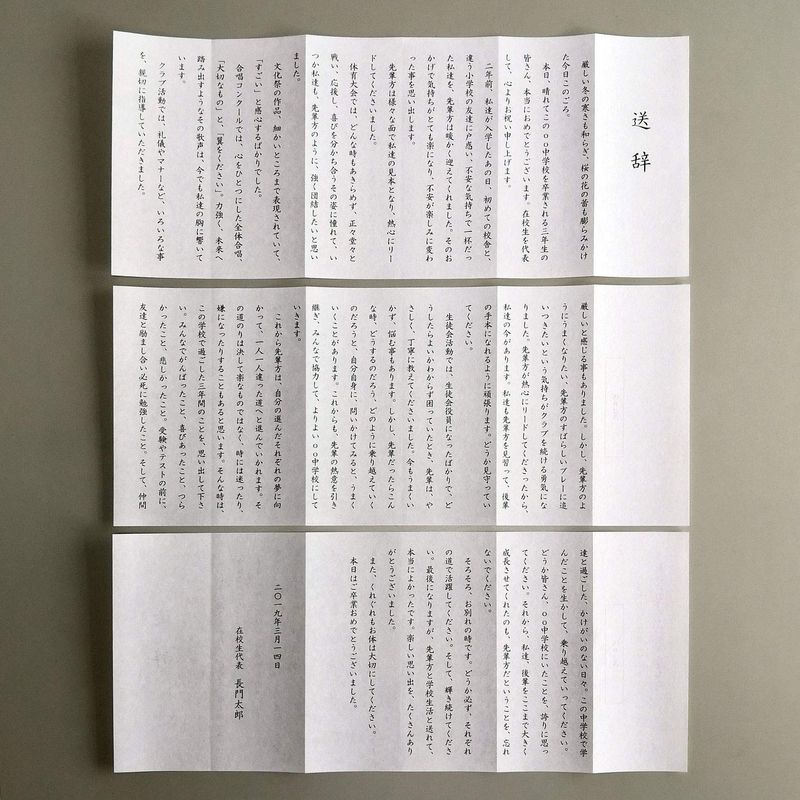 送辞
厳しい冬の寒さも和らぎ、桜の花の蕾も膨らみかけ
た今日このごろ。
本日、晴れてこの○○中学校を卒業される三年生の
皆さん、本当におめでとうございます。在校生を代表
して、心よりお祝い申し上げます。
二年前、私達が入学したあの日、初めての校舎と、
違う小学校の友達に戸惑い、不安な気持ちで一杯だっ
た私達を、先輩方は暖かく迎えてくれました。そのお
かげで気持ちがとても楽になり、不安が楽しみに変わ
った事を思い出します。
先輩方は様々な面で私達の見本となり、熱心にリー
ドしてくださいました。
体育大会では、どんな時もあきらめず、正々堂々と
戦い、応援し、喜びを分かち合うその姿に憧れて、い
つか私達も、先輩方のように、強く団結したいと思い
ました。
文化祭の作品、細かいところまで表現されていて、
「すごい」と感心するばかりでした。
合唱コンクールでは、心をひとつにした全体合唱、
「大切なもの」と、「翼をください」。力強く、未来へ
踏み出すようなその歌声は、今でも私達の胸に響いて
います。
クラブ活動では、礼儀やマナーなど、いろいろな事
を、親切に指導していただきました。
厳しいと感じる事もありました。しかし、先輩方のよ
うにうまくなりたい、先輩方のすばらしいプレーに追
いつきたいという気持ちがクラブを続ける勇気にな
りました。先輩方が熱心にリードしてくださったから、
私達の今があります。私達も先輩方を見習って、後輩
の手本になれるように頑張ります。どうか見守ってい
てください。
生徒会活動では、生徒会役員になったばかりで、ど
うしたらよいかわからず困っていたとき、先輩は、や
さしく、丁寧に教えてくださいました。今もうまくい
かず、悩む事もあります。しかし、先輩だったらこん
な時、どうするのだろう、どのように乗り越えていく
のだろうと、自分自身に、問いかけてみると、うまく
いくことがあります。これからも、先輩の熱意を引き
継ぎ、みんなで協力して、よりよい○○中学校にして
いきます。
これから先輩方は、自分の選んだそれぞれの夢に向
かって、一人一人違った道へと進んでいかれます。そ
の道のりは決して楽なものではなく、時には迷ったり、
嫌になったりすることもあると思います。そんな時は、
この学校で過ごした三年間のことを、思い出して下さ
い。みんなでがんばったこと、喜びあったこと、つら
かったこと、悲しかったこと。受験やテストの前に、
友達と励まし合い必死に勉強したこと。そして、仲間
達と過ごした、かけがいのない日々。この中学校で学
んだことを生かして、乗り越えていってください。
どうか皆さん、○○中学校にいたことを、誇りに思っ
てください。それから、私達、後輩をここまで大きく
成長させてくれたのも、先輩方だということを、忘れ
ないでください。
そろそろ、お別れの時です。どうか必ず、それぞれ
の道で活躍してください。そして、輝き続けてくださ
い。最後になりますが、先輩方と学校生活と送れて、
本当によかったです。楽しい思い出を、たくさんあり
がとうございました。
また、くれぐれもお体は大切にしてください。
本日はご卒業おめでとうございました。
二〇一九年三月一四日
在校生代表 長門太郎